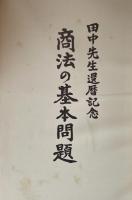 田中先生還暦記念
商法の基本問題